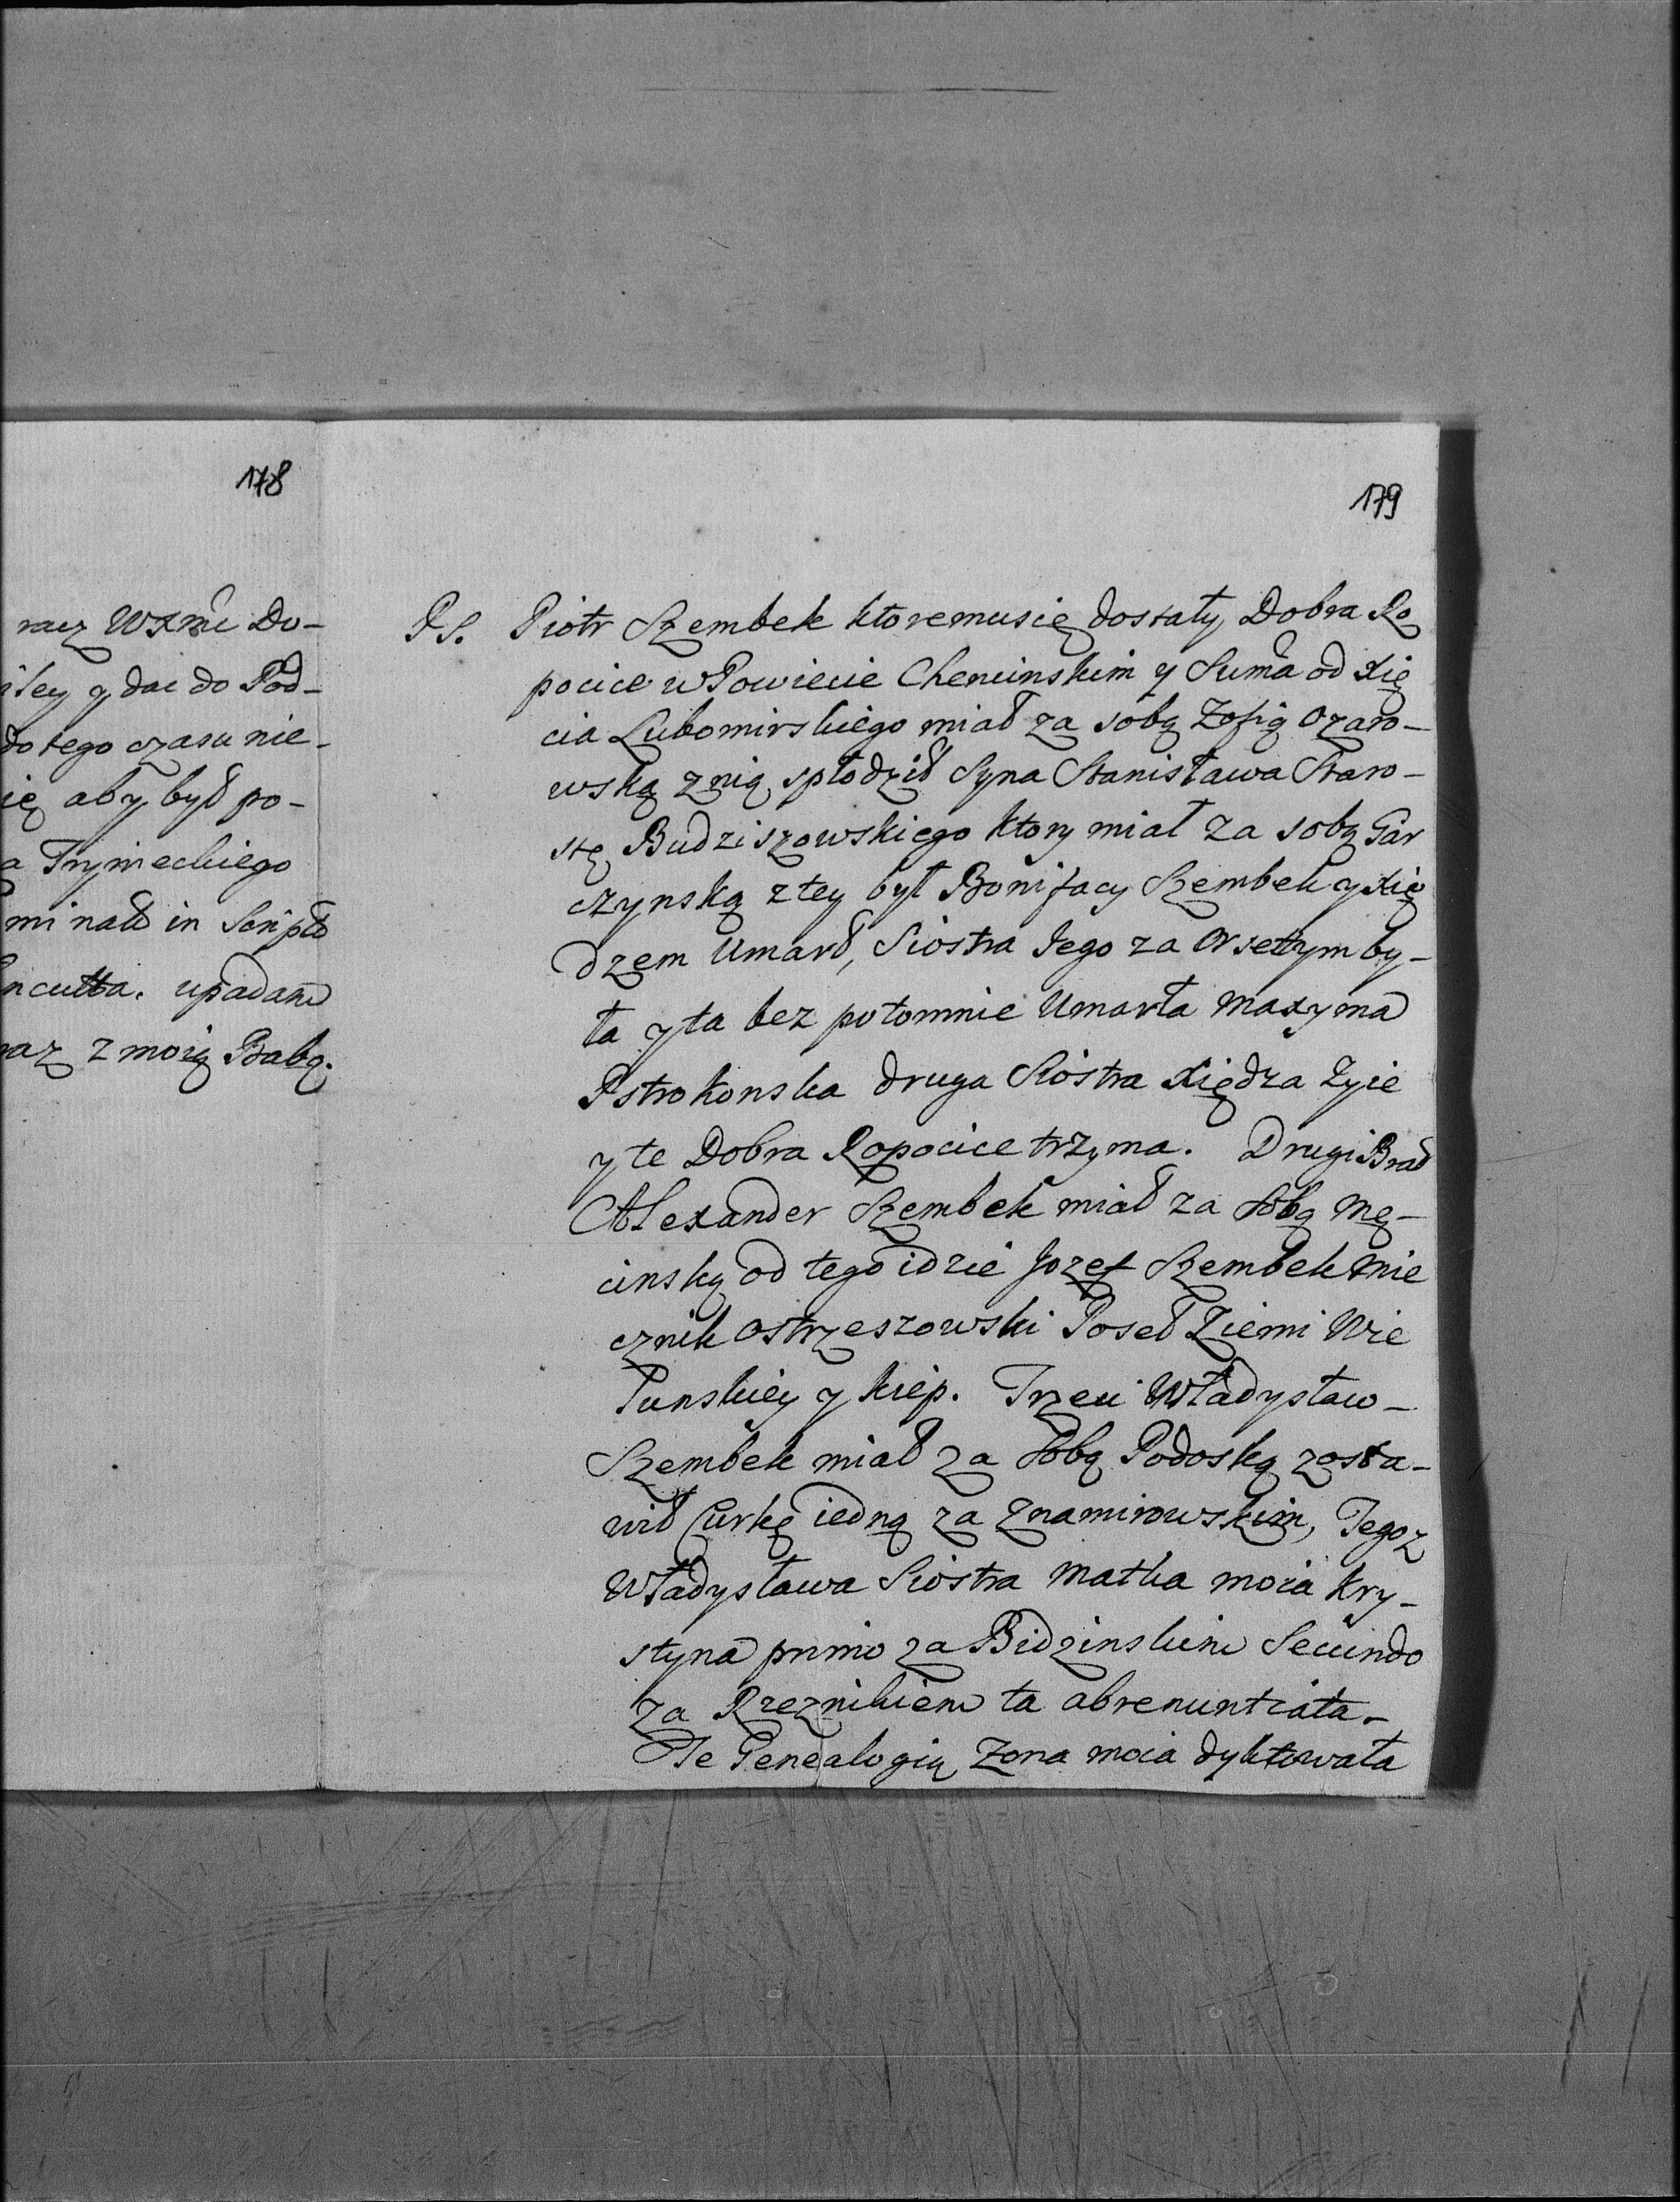 178
racz WXMć Do-
iley y dac do Pod-
do tego czasu nie-
ię aby był po-
a Trymeckiego
minał in Scripto
nculta. upadam
raz z moią Babą.
179
PS. Piotr Szembek ktoremusię dostały Dobra Ro
pocice w Powiecie Chencinskim y Suma od Xię
cia Lubomirskiego miał za sobą Zofią Ozaro-
wską z nią spłodził Syna Stanisława Staro-
stę Budziszowskiego ktory miał za sobą Gar
czynską z tey był Bonifacy Szembek y Xię
dzem Umarł, Siostra Jego za Orsettym by-
ła y ta bez potomnie Umarła Maxyma
Pstrokonska druga Siostra Xiędza Zyie
y te Dobra Ropocice trzyma. Drugi Brat
Alexander Szembek miał za sobą Mę-
cinską od tego idzie Jozef Szembek Mie
cznik Ostrzeszowski Poseł Ziemi Wie
lunskiey y kiep. Trzeci Władysław-
Szembek miał za sobą Podoską zosta-
wił Curkę iedną za Znamirowskim, Tegoz
Władysława Siostra Matka moia Kry-
styna primo za Bidzinskim Secundo
za Rzeznikiem ta abrenuntiała-
Te Genealogią Zona moia dyktowała